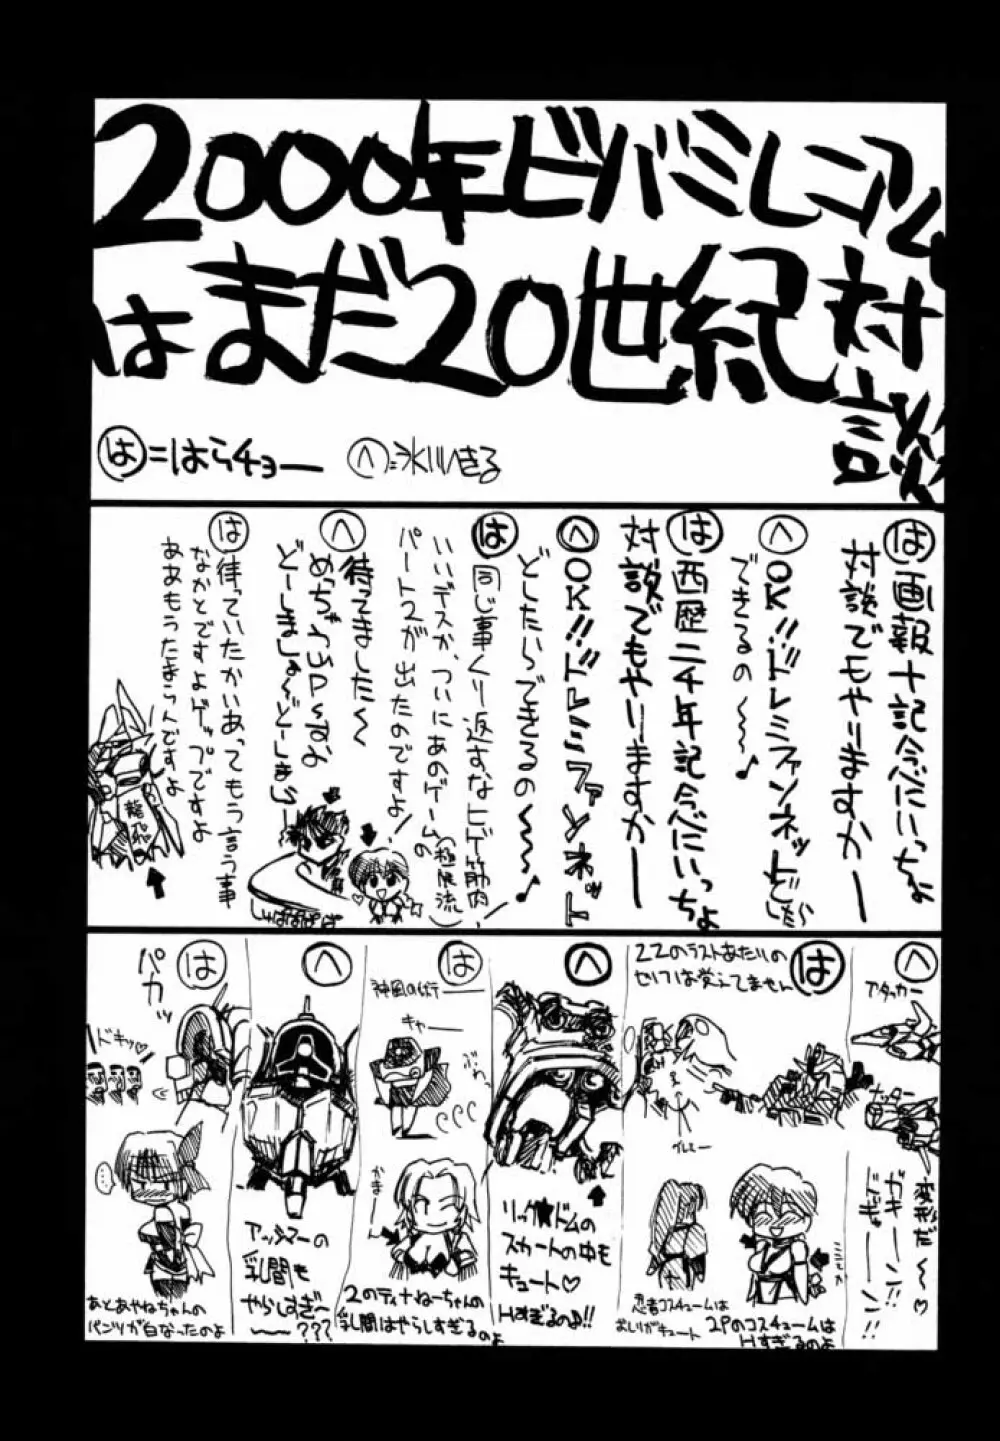 2000年ビバミレニアム
はまだ20世紀対談
は=はらチョー へ=氷川へきる
は 画報十記念にいっちょ
対談でもやりますかー
へ OK!!ドレミファンネット
できるの〜〜♪
は 西歴二千年記念にいっちょ
対談でもやりますかー
へ OK!!ドレミファンネット
どしたいらできるの〜〜♪
は 同じ事くり返すなヒゲ筋肉!
いいデスか、ついにあのゲーム(極限流)の
パート2が出たのですよ!
へ 待ってました〜
どーしましょ〜どーしましょ
は 待っていたかいあってもう言う事
なかとですよゲップですよ
ああもうたまらんですよ
龍飛
へ
アタッカー
ナッター
変形だ〜♡
ガキーーン!!
ドギューーン!!
は
ZZのラストあたりの
セリフは覚えてません
グレミー
2Pのコスチュームは
Hすぎるのよ
忍者コスチュームは
おしりがキュート
へ
リック★ドムの
スカートの中も
キュート♡
Hすぎるのよ!!
は
神風の術ー
キャー
ぶわっ
かまーー
2のティナねーちゃんの
乳間はやらしすぎるのよ
へ
アッシマーの
乳間も
やらしすぎ〜
〜〜???
は
パカッ
ドキッ♡
あとあやねちゃんの
パンツが白なったのよ